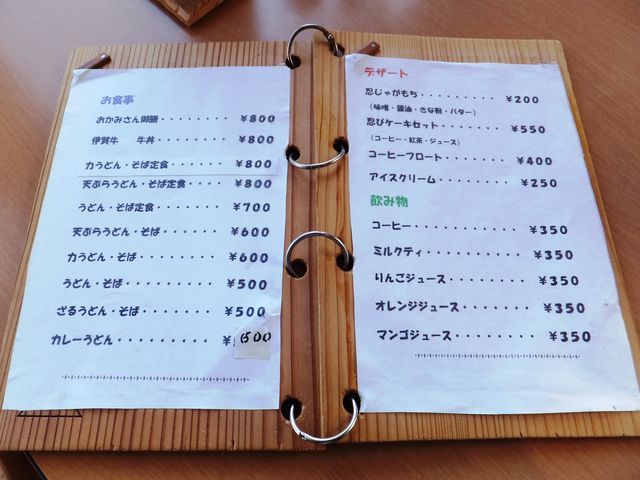 お食事
おかみさん御膳・・・・・・・・¥800
伊賀牛 牛丼・・・・・・・・¥800
力うどん・そば定食・・・・・¥800
天ぷらうどん・そば定食・・・・¥800
うどん・そば定食・・・・・・・¥700
天ぷらうどん・そば・・・・・・¥600
力うどん・そば・・・・・・・・¥600
うどん・そば・・・・・・・・・¥500
ざるうどん・そば・・・・・・・¥500
カレーうどん・・・・・・・・・¥600
デザート
忍じゃがもち・・・・・・・・・¥200
(味噌・醤油・きな粉・バター)
忍びケーキセット・・・・・・・¥550
(コーヒー・紅茶・ジュース)
コーヒーフロート・・・・・・・¥400
アイスクリーム・・・・・・・・¥250
飲み物
コーヒー・・・・・・・・・・・¥350
ミルクティ・・・・・・・・・・¥350
りんごジュース・・・・・・・・¥350
オレンジジュース・・・・・・・¥350
マンゴジュース・・・・・・・・¥350